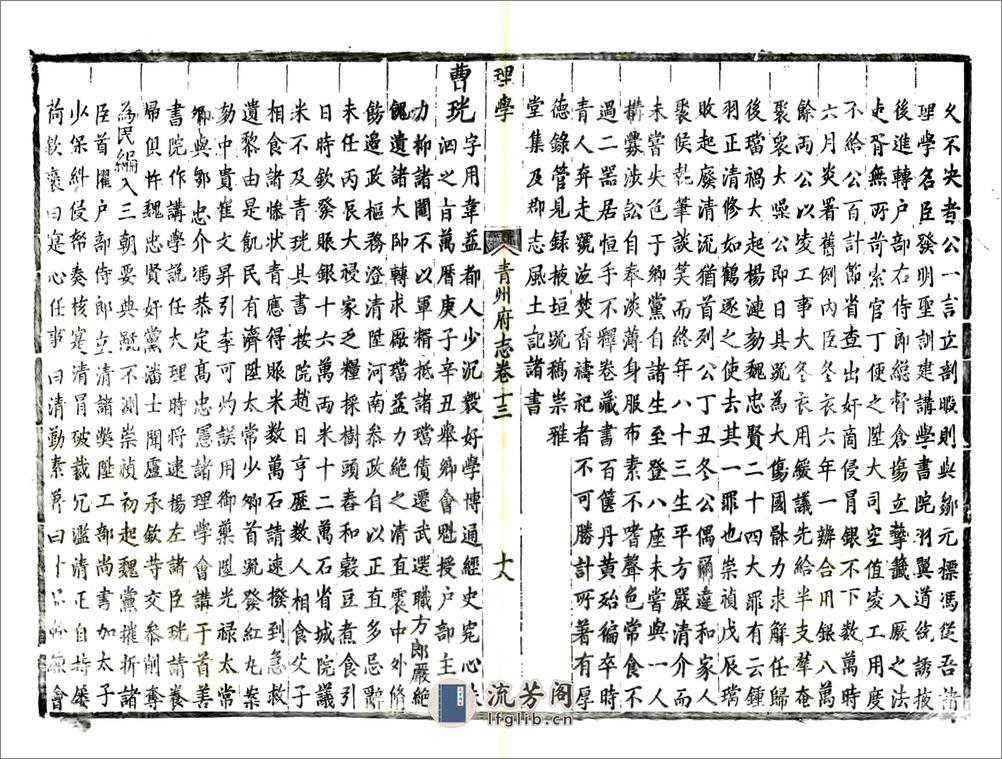 久不決者公一言立剖暇則與鄒元標馮從吾諸
理學名臣發明聖訓建講學書院羽翼道統誘掖
後進轉户部右侍郎總督倉場立摯籤入厫之法
吏胥無所苛索官丁便之陞大司空值凌工用度
不給公百計節省查出奸商侵冒銀不下數萬時
六月炎署舊例内臣冬衣六年一辦合用銀八萬
餘兩公以凌工事大冬衣用緩議先給半支輦奄
聚衆大噪公即日具疏為大傷國體力求解任歸
後璫禍大起楊漣劾魏忠賢二十四大罪有云鍾
羽正清修如鶴逐之使去其一罪也崇禎戊辰璫
敗起廢清流猶首列公丁丑冬公偶爾違和家人
聚侯乾筆談笑而終年八十三生平方嚴清介而
未嘗失色于鄉黨自諸生至登八座未嘗與一人
構釁涉訟自奉淡薄身服布素不嗜聲色常食不
過二器居恒手不釋卷藏書百篋丹黄殆徧卒時
青人奔走號泣焚香禱祀者不可勝計所著有厚
德錄管見録掖垣疏稿崇雅
堂集及郡志風土記諸書
青州府志卷十三
十八
理學
曹珖字用韋益都人少沉毅好學博通經史究心
洄之旨萬暦庚子辛丑舉鄉會魁授户部主
力抑諸閹不以軍糈抵諸璫債遷武選職方郎嚴絶
餽遺諸大帥轉求厰璫益力絶之清直震中外修
飭邉政樞務澄清陞河南叅政自以正直多忌辭
未任丙辰大祲家乏糧採樹頭舂和穀豆煮食引
日時欽發賑銀十六萬兩米十二萬石省城院議
米不及青珖具書按院趙日亨歴數人相食父子
相食諸慘狀青應得米數萬石請速撥到急救
遺黎由是飢民有濟陞太常少卿首疏發紅丸案
劾中貴崔文昇引李可灼誤用御藥陞光禄太常
卿與鄒忠介馮恭定髙忠憲諸理學會講于首善
書院作講學説任大理時將逮楊左諸臣珖請養
歸俱忤魏忠賢奸黨潘士聞盧承欽等交參削奪
為民編入三朝要典旤不測崇禎初起魏黨摧折諸
臣首擢户部侍郎立清諸弊陞工部尚書加太子
少保糾侵帑奏核寔清冐破裁冗濫清正自持屢
荷欽褒曰寔心任事曰清勤素